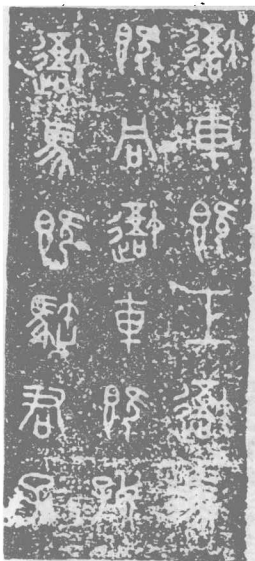 吾車既工吾馬
既同吾車既好
吾馬既𩣡君子